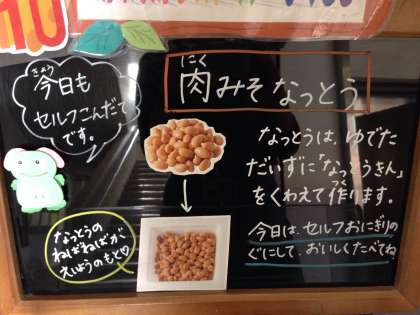 10
きょう
今日も
セルフこんだて
です。
にく
肉みそなっとう
なっとうは、ゆでた
だいずに「なっとうきん」
をくわえて作ります。
つく
今日は、セルフおにぎりの
ぐにして、おいしくたべてね
なっとうの
ねばねばが
えいようのもと♡